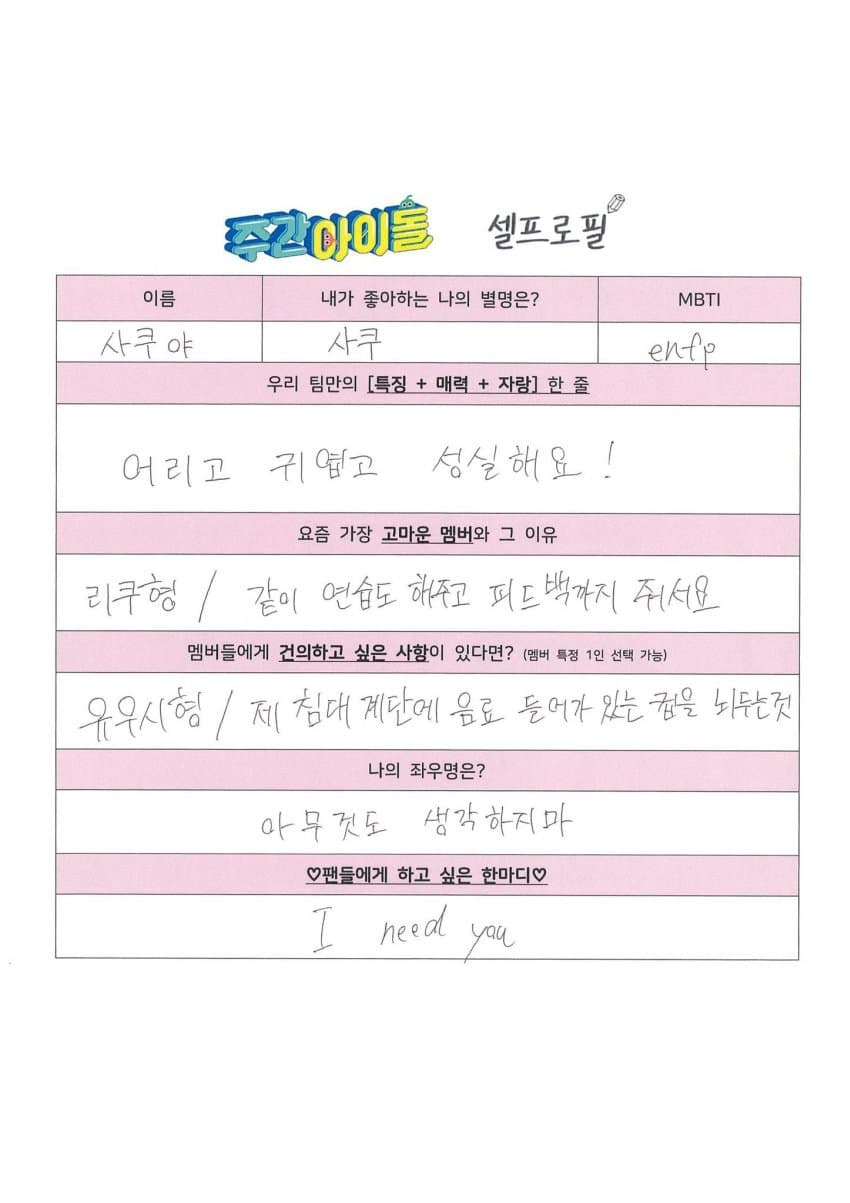 주간아이돌 셀프로필
이름 내가 좋아하는 나의 별명은? MBTI
사쿠야 사쿠 enfp
우리 팀만의 [특징 + 매력 + 자랑] 한 줄
어리고 귀엽고 성실해요!
요즘 가장 고마운 멤버와 그 이유
리쿠형 / 같이 연습도 해주고 피드백까지 줘서요
멤버들에게 건의하고 싶은 사항이 있다면? (멤버 특정 1인 선택 가능)
유우시형 / 제 침대 계단에 음료 들어가 있는 컵을 놔두는것
나의 좌우명은?
아무것도 생각하지마
♡팬들에게 하고 싶은 한마디♡
I need you